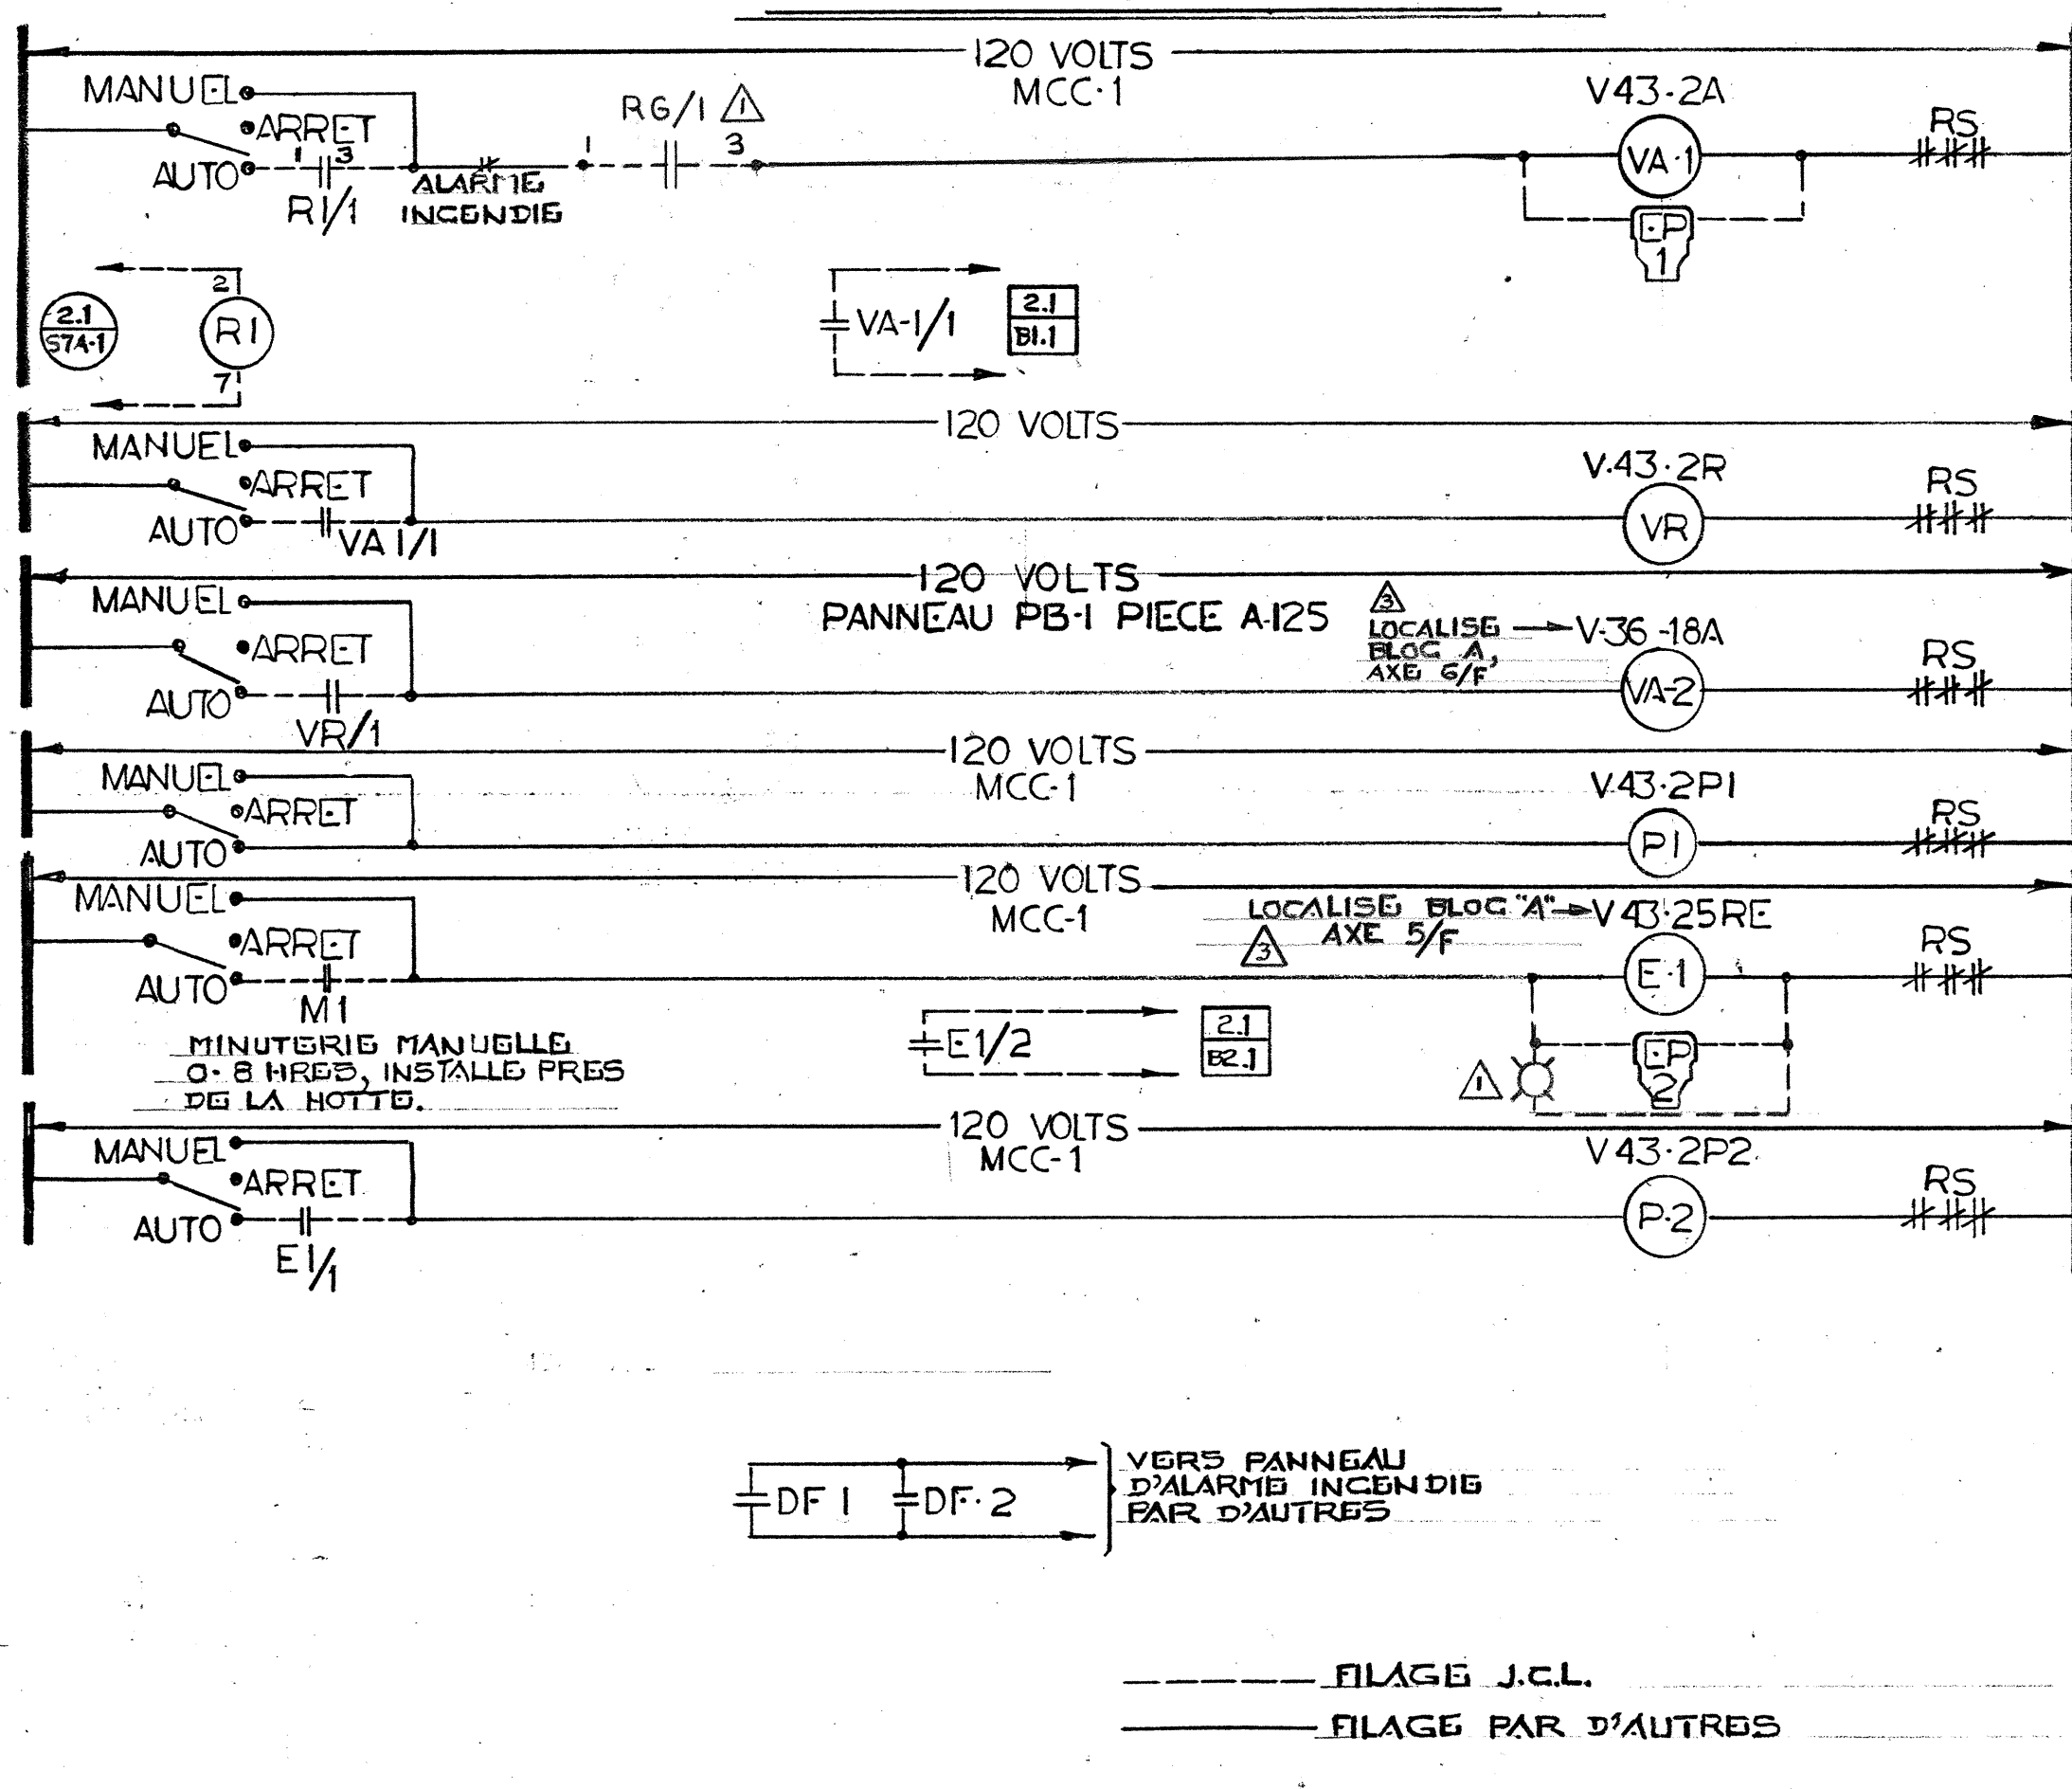 120 VOLTS
MCC·1
MANUEL
ARRET
AUTO
1 3
R1/1
ALARME
INCENDIE
1
RG/1
1
3
V43·2A
VA·1
RS
EP
1
2.1
S7A·1
2
R1
7
VA-1/1
2.1
B1.1
120 VOLTS
MANUEL
ARRET
AUTO
VA 1/1
V.43·2R
VR
RS
120 VOLTS
PANNEAU PB-1 PIECE A-125
MANUEL
ARRET
AUTO
VR/1
3
LOCALISE
BLOC A,
AXE 6/F
V-36-18A
VA-2
RS
120 VOLTS
MCC-1
MANUEL
ARRET
AUTO
V.43·2P1
P1
RS
120 VOLTS
MCC-1
MANUEL
ARRET
AUTO
M1
MINUTERIE MANUELLE
0-8 HRES, INSTALLE PRES
DE LA HOTTE.
LOCALISE BLOC "A"
AXE 5/F
3
V43·25RE
E·1
RS
E1/2
2.1
B2.1
1
EP
2
120 VOLTS
MCC-1
MANUEL
ARRET
AUTO
E1/1
V43·2P2
P·2
RS
DF 1
DF·2
VERS PANNEAU
D'ALARME INCENDIE
PAR D'AUTRES
FILAGE J.C.L.
FILAGE PAR D'AUTRES